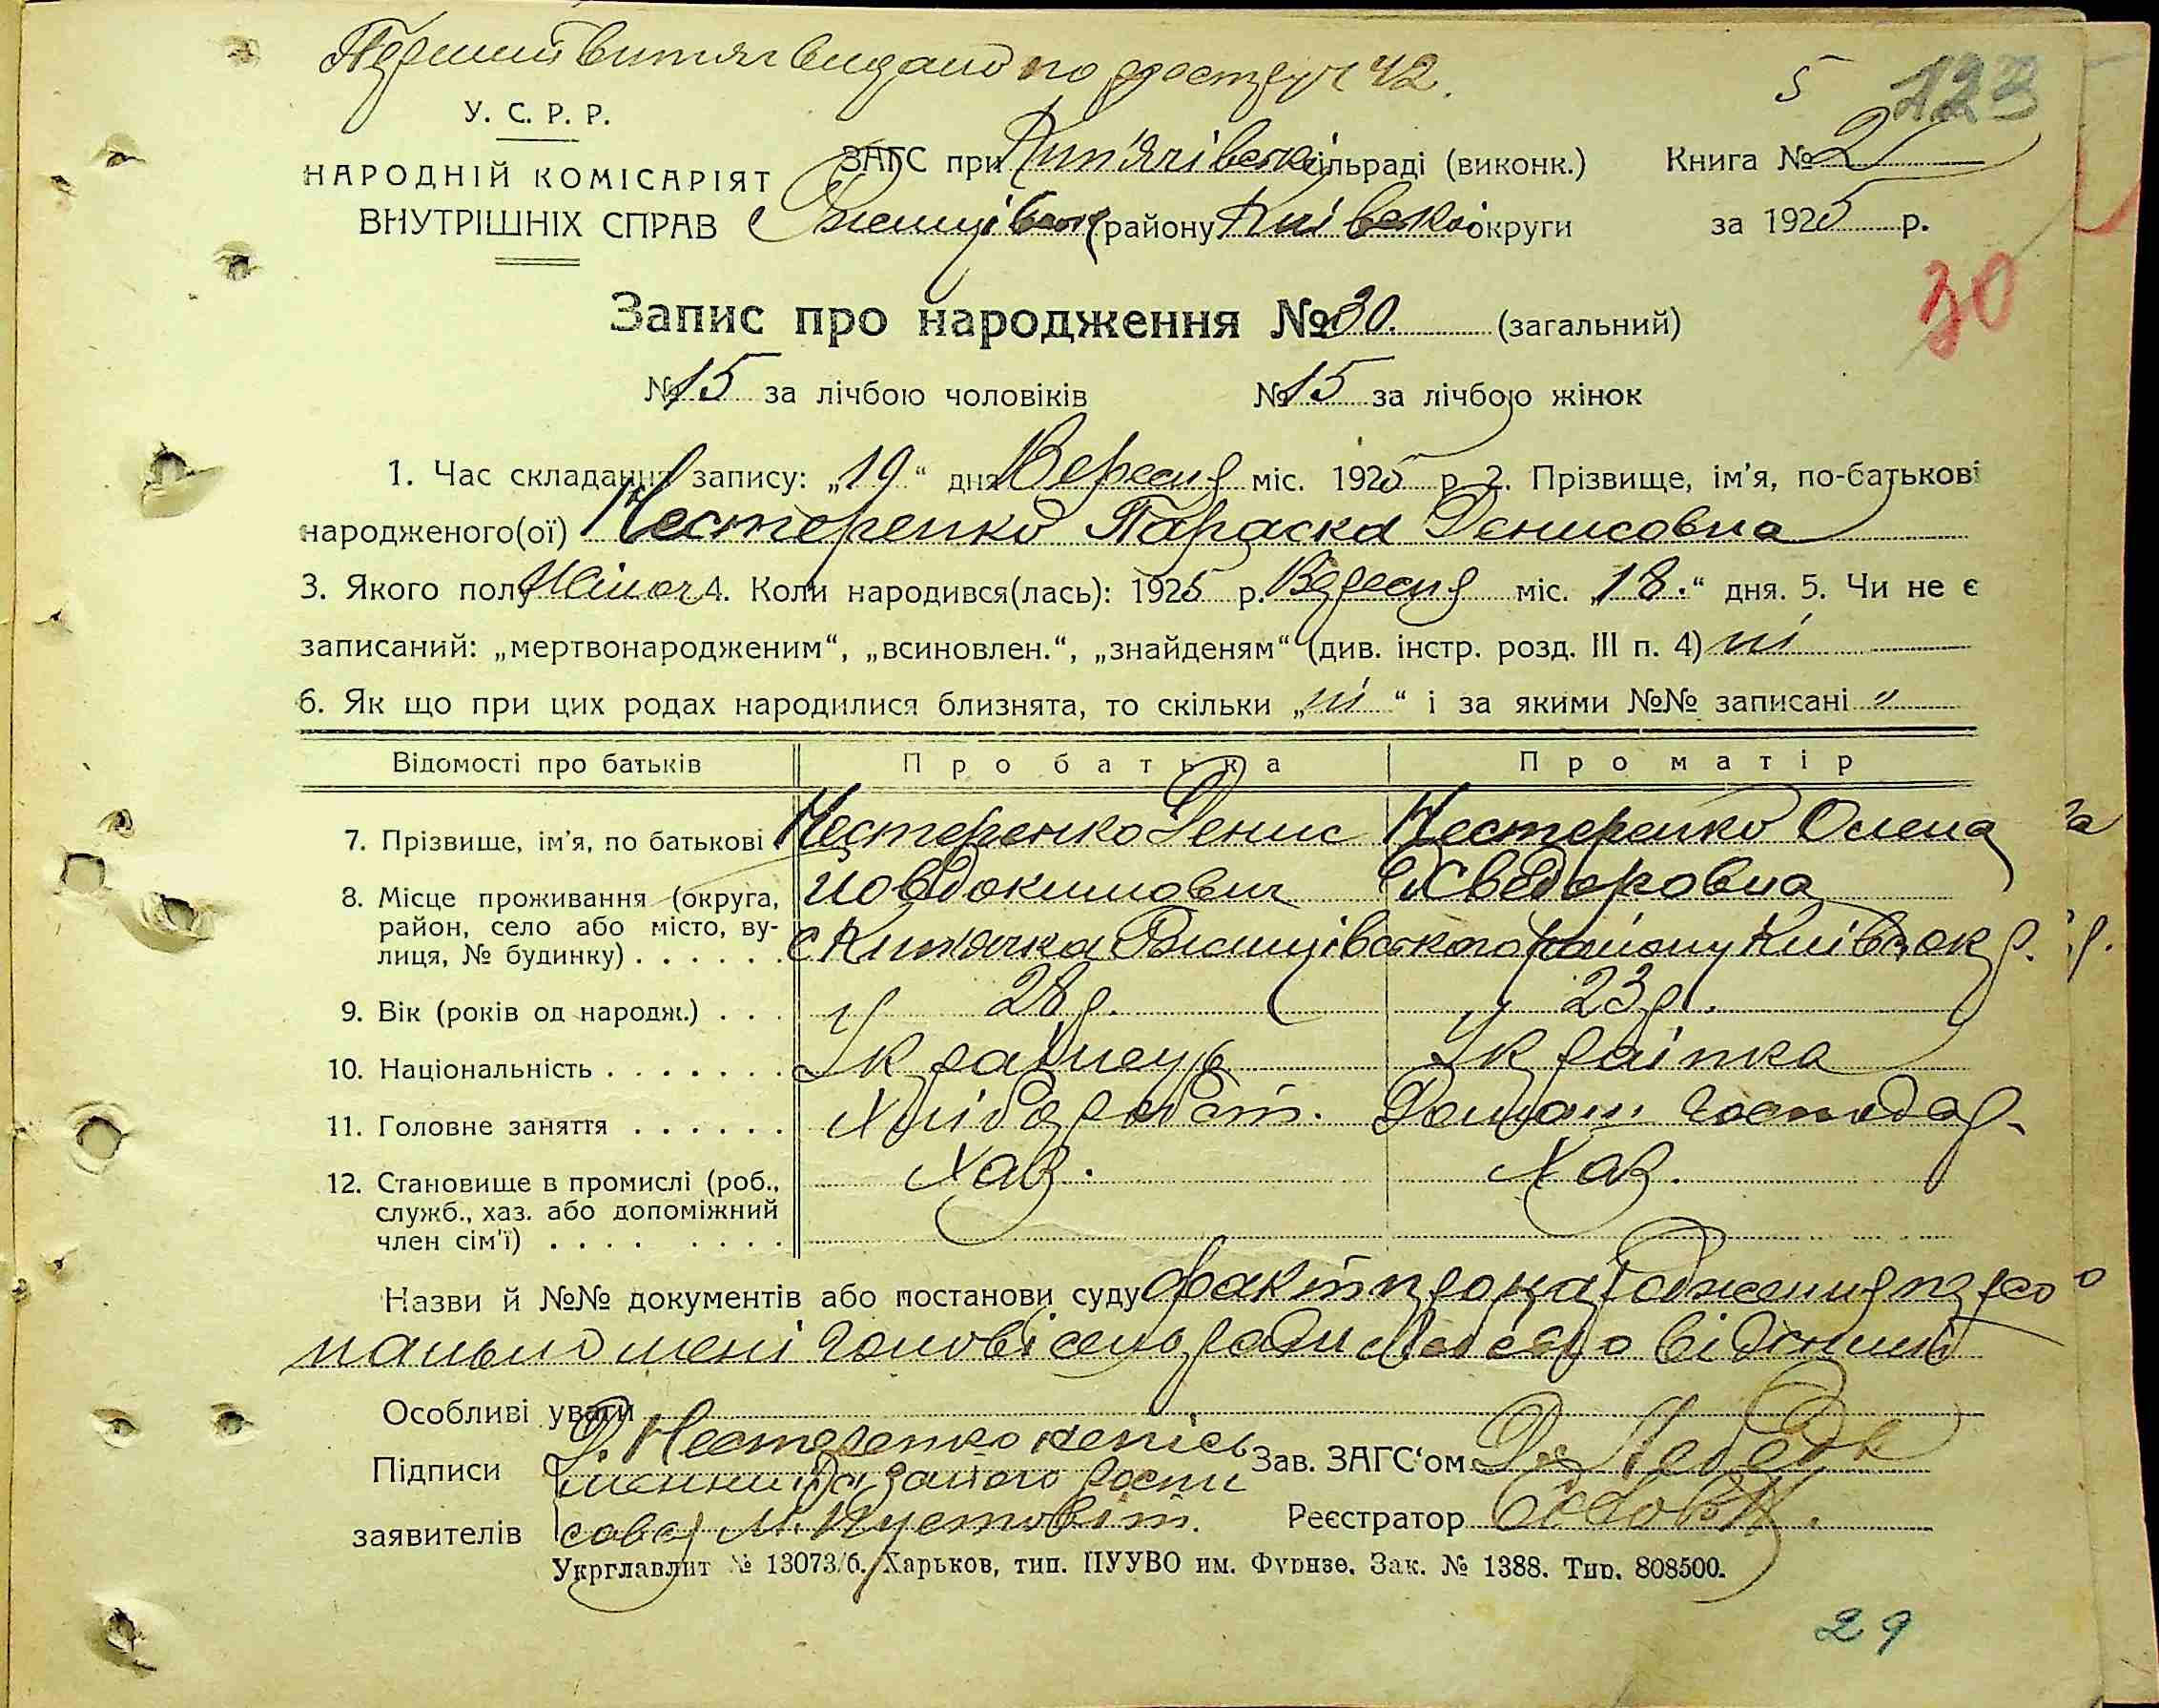 Перший витяг видано по реєстру ч 42.
5 123
У. С. Р. Р.
ЗАГС при Кип'ячівськ сільраді (виконк.) Книга № 2
НАРОДНІЙ КОМІСАРІЯТ
ВНУТРІШНІХ СПРАВ Ржищівськ району Київської округи за 1925 р.
30
Запис про народження № 30. (загальний)
№ 15 за лічбою чоловіків № 15 за лічбою жінок
1. Час складання запису: „19“ дня Вересня міс. 1925 р. 2. Прізвище, ім’я, по-батькові
народженого(ої) Нестеренко Параска Денисовна
3. Якого полу Жіноч 4. Коли народився(лась): 1925 р. Вересня міс. „18.“ дня. 5. Чи не є
записаний: „мертвонародженим“, „всиновлен.“, „знайденям“ (див. інстр. розд. III п. 4) ні
6. Як що при цих родах народилися близнята, то скільки „ні“ і за якими №№ записані "
Відомості про батьків Про батька Про матір
7. Прізвище, ім’я, по батькові Нестеренко Денис Нестеренко Олена
8. Місце проживання (округа, Йовдокимович Хведоровна
район, село або місто, ву-
лиця, № будинку) . . . . . . с Кип'ячка Ржищівського району Київ. окр.
9. Вік (років од народж.) . . . 28 р. 23 р.
10. Національність . . . . . . . Українець Українка
11. Головне заняття . . . . . . Хлібороб Домаш. господар.
12. Становище в промислі (роб., Хаз. Хаз.
служб., хаз. або допоміжний
член сім’ї) . . . . . . . .
Назви й №№ документів або постанови суду факт про народження
мені голові сельради
Особливі уваги
Підписи Д. Нестеренко
заявителів М. Пустовіт.
Зав. ЗАГС‘ом
Реєстратор
Укрглавлит № 13073/б. Харьков, тип. ПУУВО им. Фрунзе. Зак. № 1388. Тир. 808500.
29